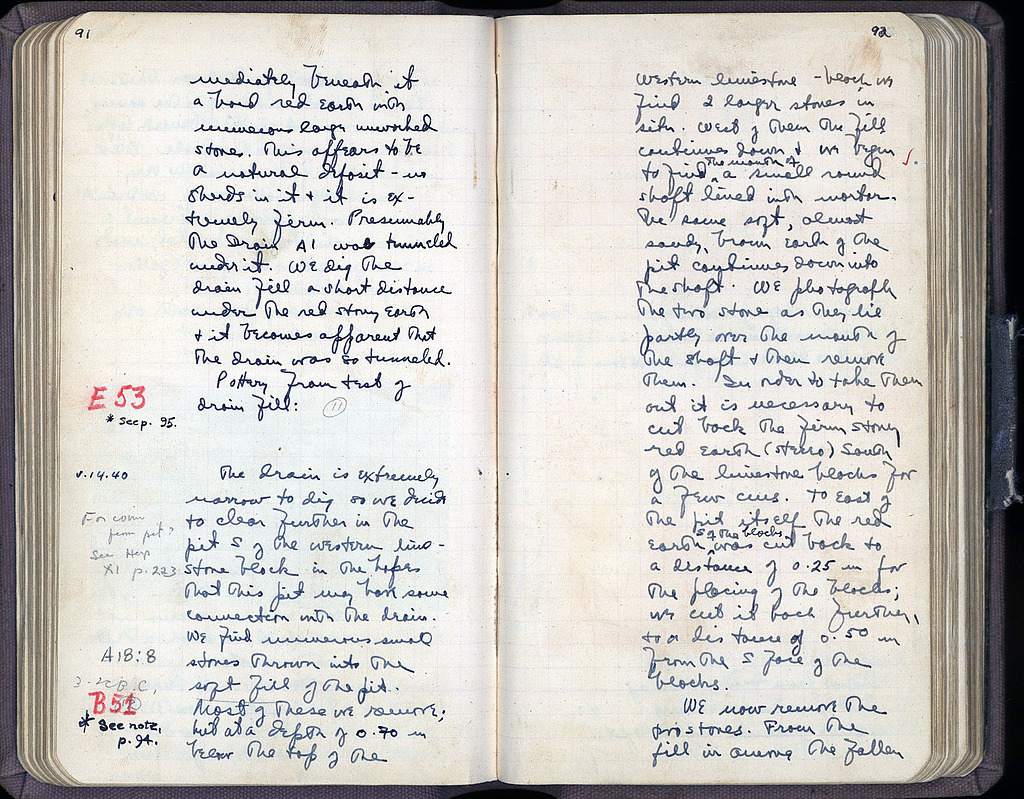 91
mediately beneath it
a hard red earth with
numerous large unworked
stones. This appears to be
a natural deposit - no
sherds in it & it is ex-
tremely firm. Presumably
the drain A1 was tunneled
under it. We dig the
drain fill a short distance
under the red stony earth
& it becomes apparent that
the drain was so tunneled.
Pottery from test of
drain fill: 11
E 53
* see p. 95.
v.14.40
The drain is extremely
narrow to dig so we decide
to clear further in the
pit S of the western lime-
stone block in the hopes
that this pit may have some
connection with the drain.
We find numerous small
stones thrown into the
soft fill of the pit.
Most of these we remove;
but at a depth of 0.70 m
below the top of the
For coin
from pit?
See Hesp
XI p. 223
A18:8
3-2cB.C.
B52
* See note,
p. 94.
92
western limestone - block we
find 2 larger stones in
situ. West of them the fill
continues down & we begin
to find the mouth of a small round
shaft lined with mortar.
The same soft, almost
sandy, brown earth of the
pit continues down into
the shaft. We photograph
the two stone as they lie
partly over the mouth of
the shaft & then remove
them. In order to take them
out it is necessary to
cut back the firm stony
red earth (stereo) South
of the limestone blocks for
a few cms. To East of
the pit itself the red
earth S of the blocks was cut back to
a distance of 0.25 m for
the placing of the blocks;
we cut it back further,
to a distance of 0.50 m
from the S face of the
blocks.
We now remove the
two stones. From the
fill in among the fallen